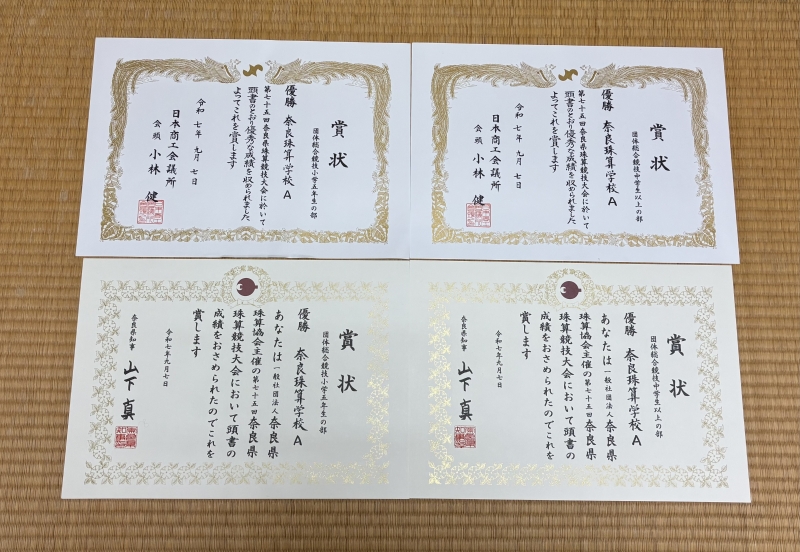 賞状
団体総合競技小学五年生の部
優勝 奈良珠算学校A
第七十五回奈良県珠算競技大会に於いて
頭書のとおり優秀な成績を収められました
よってこれを賞します
令和七年九月七日
日本商工会議所
会頭 小林 健
賞状
団体総合競技中学生以上の部
優勝 奈良珠算学校A
第七十五回奈良県珠算競技大会に於いて
頭書のとおり優秀な成績を収められました
よってこれを賞します
令和七年九月七日
日本商工会議所
会頭 小林 健
賞状
団体総合競技小学五年生の部
優勝 奈良珠算学校A
あなたは一般社団法人奈良県
珠算協会主催の第七十五回奈良県
珠算競技大会において頭書の
成績をおさめられたのでこれを
賞します
令和七年九月七日
奈良県知事 山下真
賞状
団体総合競技中学生以上の部
優勝 奈良珠算学校A
あなたは一般社団法人奈良県
珠算協会主催の第七十五回奈良県
珠算競技大会において頭書の
成績をおさめられたのでこれを
賞します
令和七年九月七日
奈良県知事 山下真